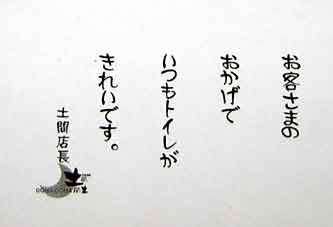 お客さまの
おかげで
いつもトイレが
きれいです。
土間店長